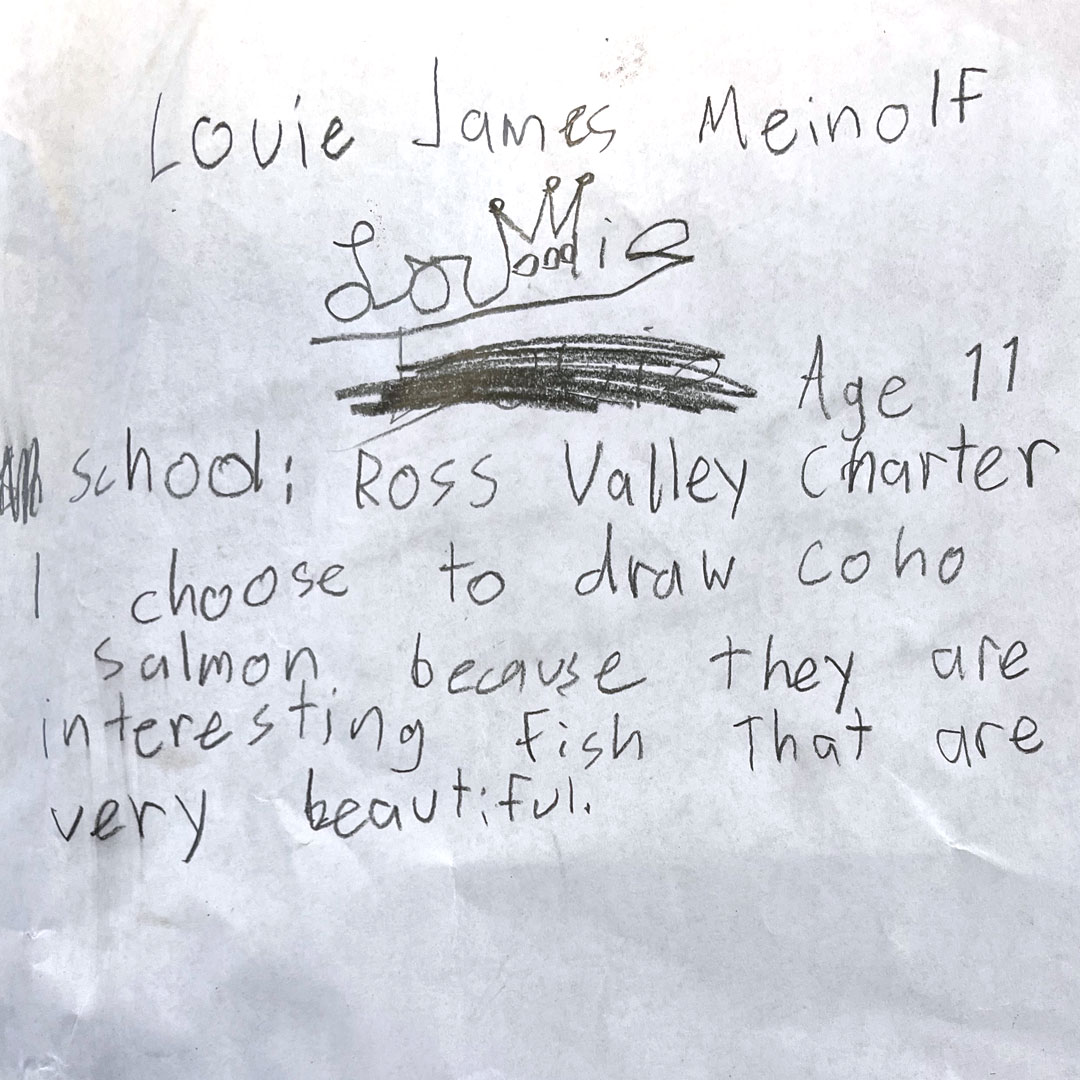 Louie James Meinolf
Louie
Age 11
school: Ross Valley Charter
I choose to draw coho
salmon because they are
interesting fish That are
very beautiful.